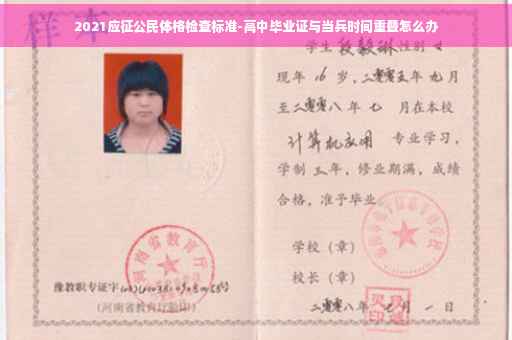 2021应征公民体格检查标准-高中毕业证与当兵时间重叠怎么办
样本
学生 段毅琳 性别 女
现年 16 岁，二零零五年 九月
至二零零八年 七 月在本校
计算机应用 专业学习，
学制 三 年，修业期满，成绩
合格，准予毕业
学校（章）
校长（章）
二零零八年 七 月 一 日
河南省教育厅
豫教职专证字
（河南省教育厅验印）